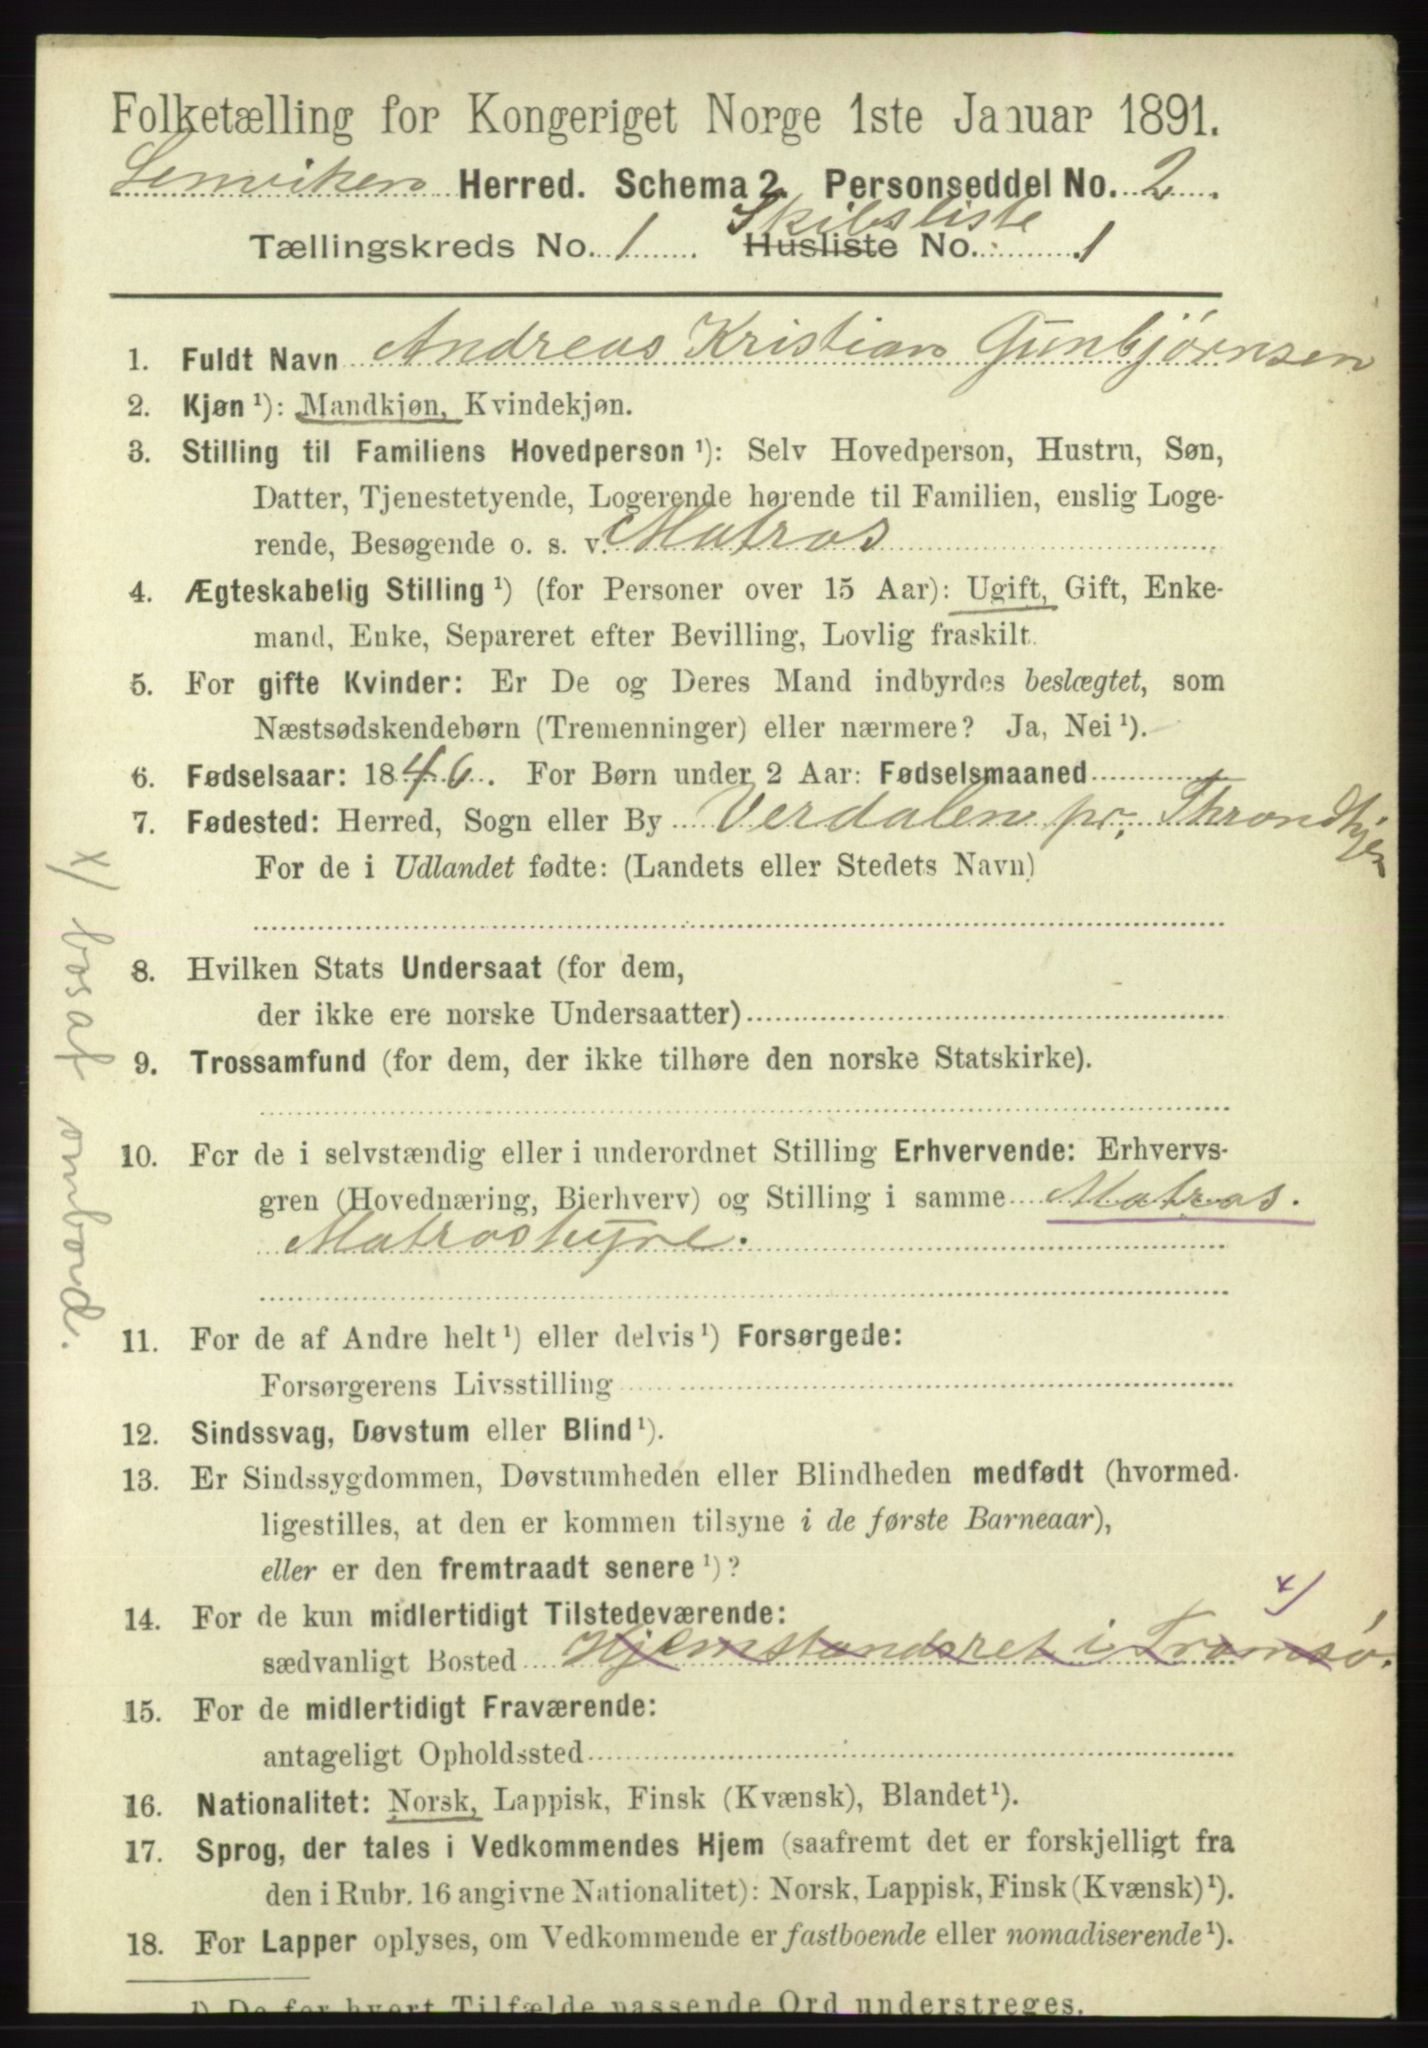 Folketælling for Kongeriget Norge 1ste Januar 1891.
Lenviken Herred. Schema 2. Personseddel No. 2.
Skibsliste
Tællingskreds No. 1 Husliste No. 1
1. Fuldt Navn Andreas Kristian Gunbjørnsen
2. Kjøn ¹): Mandkjøn, Kvindekjøn.
3. Stilling til Familiens Hovedperson ¹): Selv Hovedperson, Hustru, Søn,
Datter, Tjenestetyende, Logerende hørende til Familien, enslig Loge-
rende, Besøgende o. s. v. Matros
4. Ægteskabelig Stilling ¹) (for Personer over 15 Aar): Ugift, Gift, Enke-
mand, Enke, Separeret efter Bevilling, Lovlig fraskilt.
5. For gifte Kvinder: Er De og Deres Mand indbyrdes beslægtet, som
Næstsødskendebørn (Tremenninger) eller nærmere? Ja, Nei ¹).
6. Fødselsaar: 1846. For Børn under 2 Aar: Fødselsmaaned
7. Fødested: Herred, Sogn eller By Verdalen pr. Throndhjem
For de i Udlandet fødte: (Landets eller Stedets Navn)
8. Hvilken Stats Undersaat (for dem,
der ikke ere norske Undersaatter)
9. Trossamfund (for dem, der ikke tilhøre den norske Statskirke).
10. For de i selvstændig eller i underordnet Stilling Erhvervende: Erhvervs-
gren (Hovednæring, Bierhverv) og Stilling i samme Matros.
Matroshyre.
11. For de af Andre helt ¹) eller delvis ¹) Forsørgede:
Forsørgerens Livsstilling
12. Sindssvag, Døvstum eller Blind ¹).
13. Er Sindssygdommen, Døvstumheden eller Blindheden medfødt (hvormed
ligestilles, at den er kommen tilsyne i de første Barneaar),
eller er den fremtraadt senere ¹)?
14. For de kun midlertidigt Tilstedeværende: x)
sædvanligt Bosted Hjemstandsret i Tromsø.
15. For de midlertidigt Fraværende:
antageligt Opholdssted
16. Nationalitet: Norsk, Lappisk, Finsk (Kvænsk), Blandet ¹).
17. Sprog, der tales i Vedkommendes Hjem (saafremt det er forskjelligt fra
den i Rubr. 16 angivne Nationalitet): Norsk, Lappisk, Finsk (Kvænsk) ¹).
18. For Lapper oplyses, om Vedkommende er fastboende eller nomadiserende ¹).
¹) De for hvert Tilfælde passende Ord understreges.
x) bosat ombord.